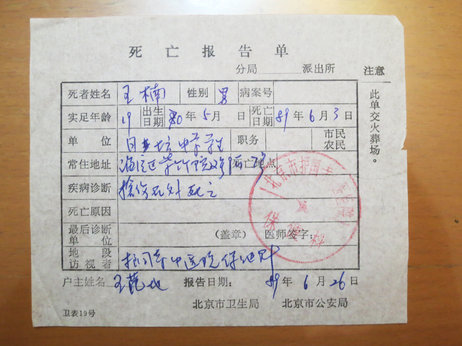 死亡报告单
分局 派出所
注意
此单交火葬场。
死者姓名 王楠 性别 男 病案号
实足年龄 19 出生日期 年5月 日 死亡日期 89年6月3日
单位 月坛中学学生 职务 市民 农民
常住地址 死亡地点
疾病诊断 枪伤 死亡
死亡原因
最后诊断单位 (盖章) 医师签字:
地段访视者 中医院保
户主姓名 王范地 报告日期: 89年6月26日
卫表19号 北京市卫生局 北京市公安局
北京市护国寺